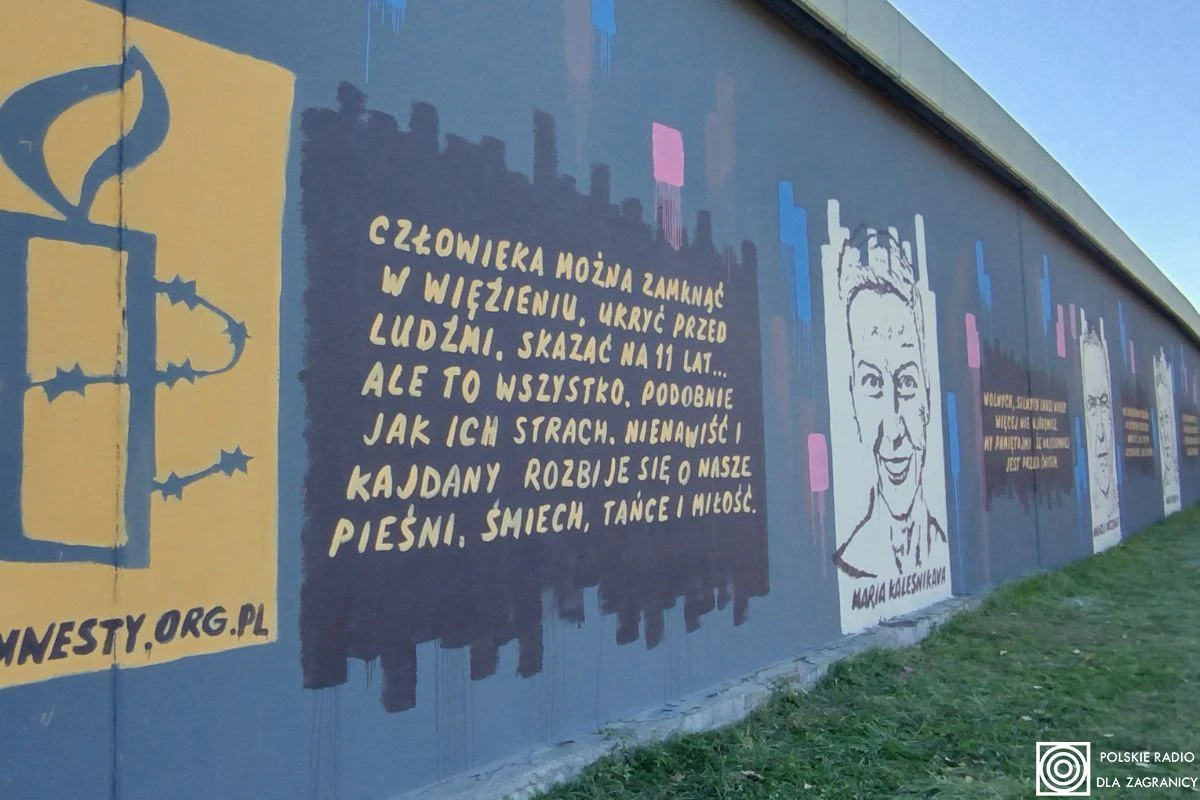 MNESTY.ORG.PL
CZŁOWIEKA MOŻNA ZAMKNĄĆ
W WIĘZIENIU, UKRYĆ PRZED
LUDŹMI, SKAZAĆ NA 11 LAT...
ALE TO WSZYSTKO, PODOBNIE
JAK ICH STRACH, NIENAWIŚĆ I
KAJDANY ROZBIJE SIĘ O NASZE
PIEŚNI, ŚMIECH, TAŃCE I MIŁOŚĆ.
MARIA KALESNIKAVA
WOLNYCH, SILNYCH LUDZI
WIĘCEJ NIE
MY PAMIĘTAJMY ŻE NAJCIEMNIEJ
JEST PRZED ŚWITEM.
POLSKIE RADIO
DLA ZAGRANICY